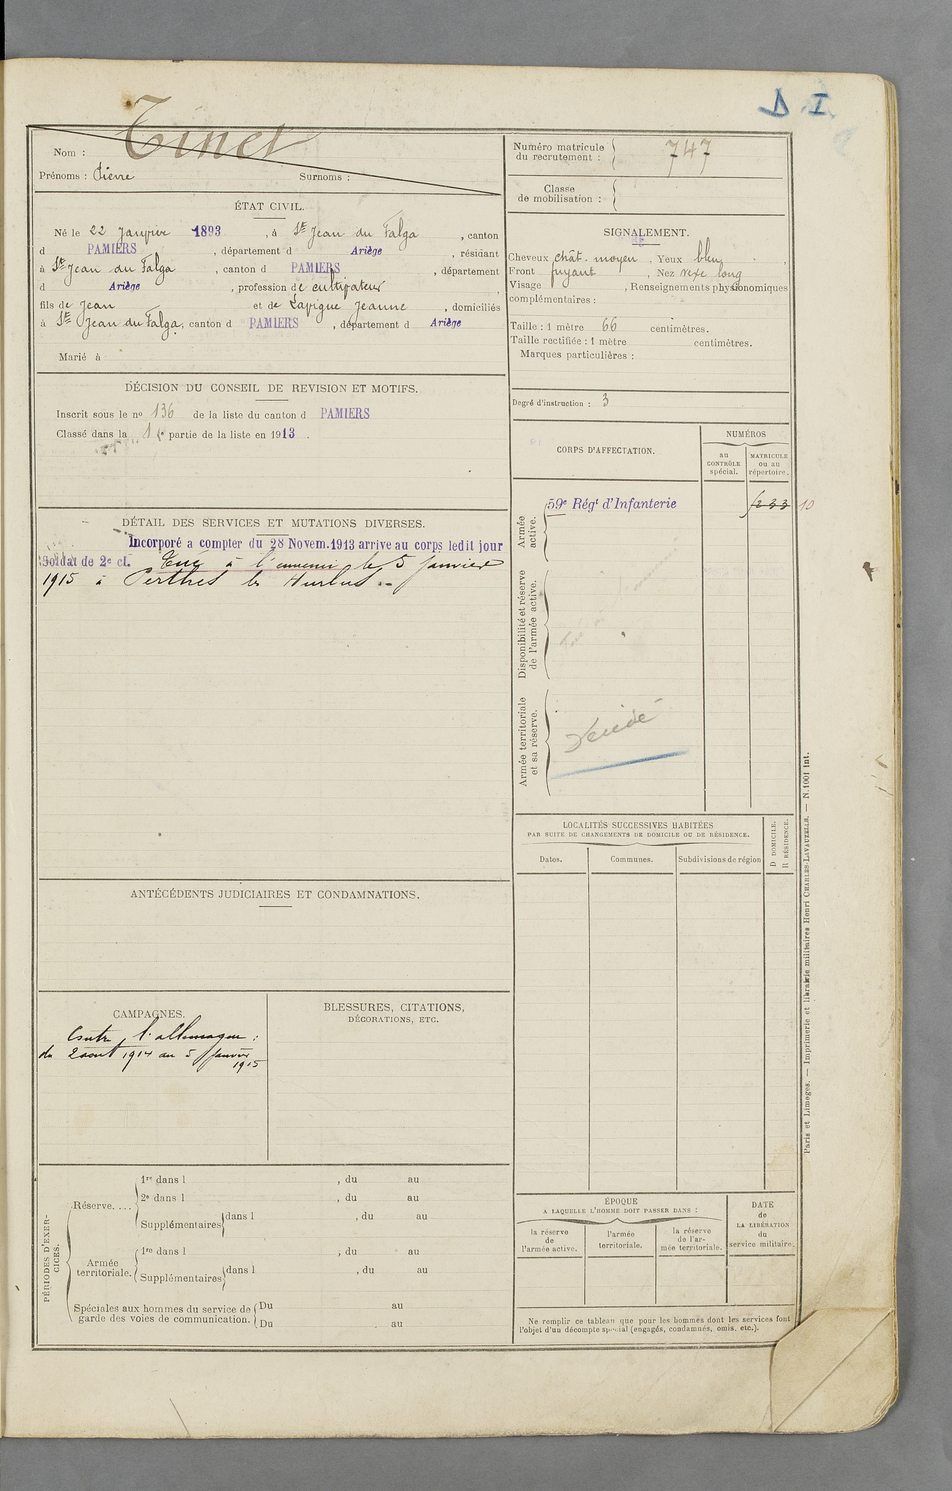 D I
Nom : Tinet
Prénoms : Pierre Surnoms :
ÉTAT CIVIL.
Né le 22 Janvier 1893, à St Jean du Falga, canton
d PAMIERS, département d Ariège, résidant
à St Jean du Falga, canton d PAMIERS, département
d Ariège, profession de cultivateur
fils de Jean et de Lavigne Jeanne, domiciliés
à St Jean du Falga, canton d PAMIERS, département d Ariège
Marié à
DÉCISION DU CONSEIL DE REVISION ET MOTIFS.
Inscrit sous le no 136 de la liste du canton d PAMIERS
Classé dans la 1re partie de la liste en 1913.
DÉTAIL DES SERVICES ET MUTATIONS DIVERSES.
Incorporé a compter du 28 Novem. 1913 arrive au corps ledit jour
Soldat de 2e cl. Tué à l'ennemi le 5 Janvier
1915 à Perthes les Hurlus
ANTÉCÉDENTS JUDICIAIRES ET CONDAMNATIONS.
CAMPAGNES.
Contre l'allemagne :
du 2 aout 1914 au 5 Janvier
1915
BLESSURES, CITATIONS,
DÉCORATIONS, ETC.
PÉRIODES D'EXER-
CICES.
Réserve....
1re dans l , du au
2e dans l , du au
Supplémentaires dans l , du au
Armée
territoriale.
1re dans l , du au
Supplémentaires dans l , du au
Spéciales aux hommes du service de
garde des voies de communication.
Du au
Du au
Numéro matricule
du recrutement : 747
Classe
de mobilisation :
SIGNALEMENT.
Cheveux chât. moyen, Yeux bleu
Front fuyant, Nez vexe long
Visage , Renseignements physionomiques
complémentaires :
Taille : 1 mètre 66 centimètres.
Taille rectifiée : 1 mètre centimètres.
Marques particulières :
Degré d'instruction : 3
CORPS D'AFFECTATION.
NUMÉROS
au
CONTRÔLE
spécial.
MATRICULE
ou au
répertoire.
Armée
active.
59e Régt d'Infanterie
10
Disponibilité et réserve
de l'armée active.
Armée territoriale
et sa réserve.
Décédé
LOCALITÉS SUCCESSIVES HABITÉES
PAR SUITE DE CHANGEMENTS DE DOMICILE OU DE RÉSIDENCE.
Dates.
Communes.
Subdivisions de région
D DOMICILE.
R RÉSIDENCE.
ÉPOQUE
A LAQUELLE L'HOMME DOIT PASSER DANS :
la réserve
de
l'armée active.
l'armée
territoriale.
la réserve
de l'ar-
mée territoriale.
DATE
de
LA LIBÉRATION
du
service militaire.
Ne remplir ce tableau que pour les hommes dont les services font
l'objet d'un décompte spécial (engagés, condamnés, omis, etc.).
Paris et Limoges. — Imprimerie et librairie militaires Henri CHARLES-LAVAUZELLE. — N.1001 int.